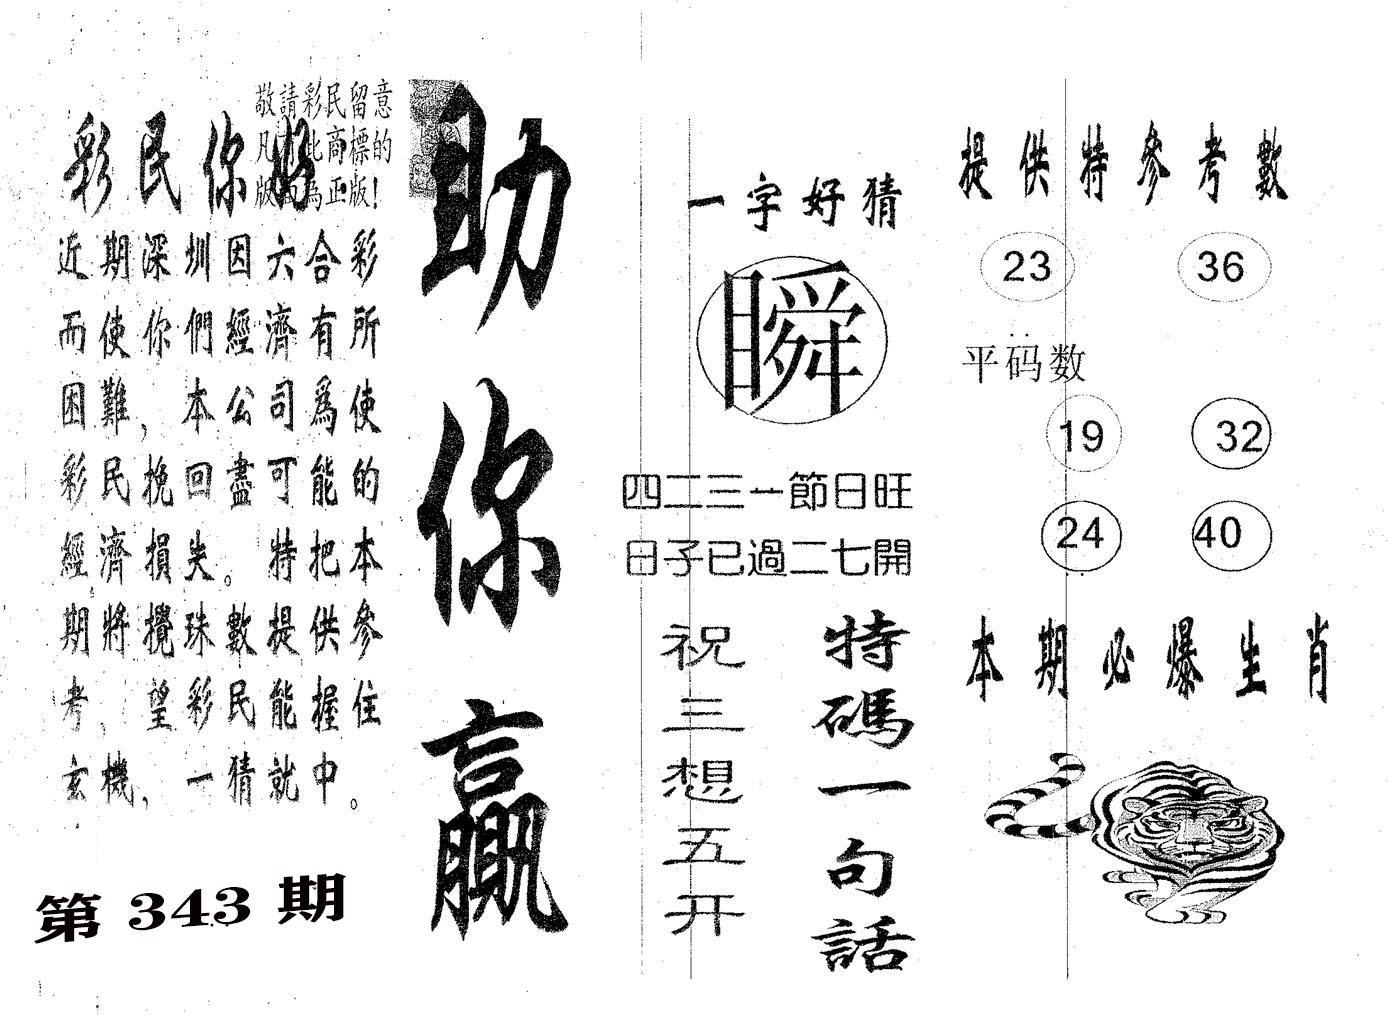 敬請彩民留意
凡有此商標的
版面為正版!
彩民你好
近期深圳因六合彩
而使你們經濟有所
困難，本公司爲使
彩民挽回盡可能的
經濟損失。特把本
期將攪珠數提供參
考，望彩民能握住
玄機，一猜就中。
第343期
助你贏
一字好猜
瞬
四二三一節日旺
日子已過二七開
特碼一句話
祝三想五开
提供特參考數
23 36
平码数
19 32
24 40
本期必爆生肖